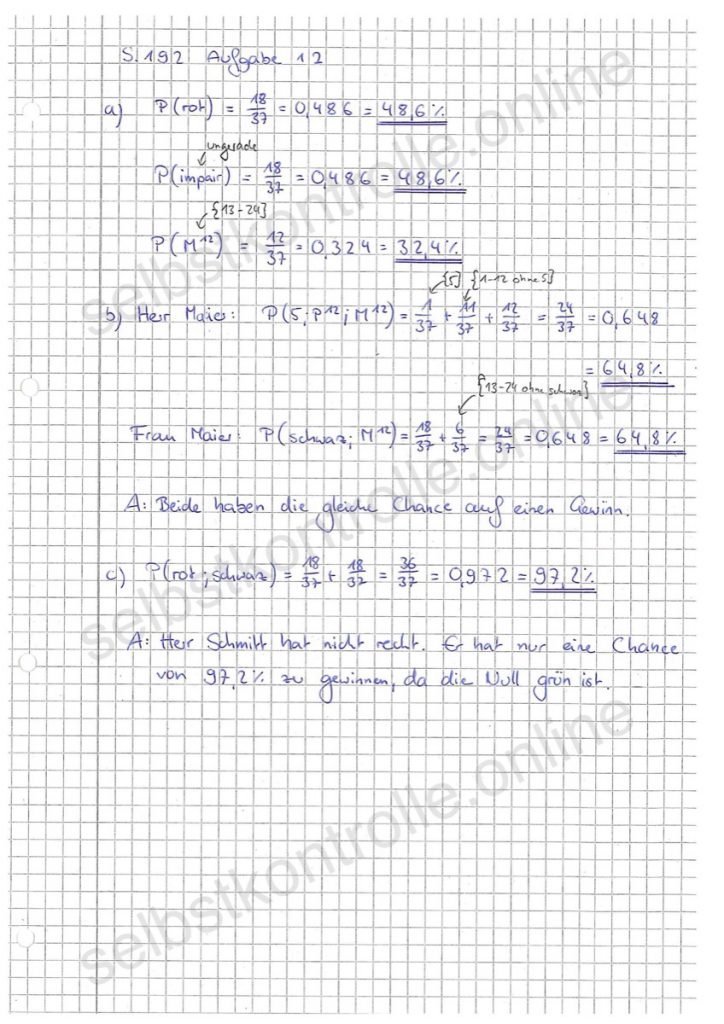 S. 192 Aufgabe 12
a) P(rot) = 18/37 = 0,486 = 48,6%
ungerade
P(impair) = 18/37 = 0,486 = 48,6%
{13-24}
P(M¹²) = 12/37 = 0,324 = 32,4%
{5} {1-12 ohne 5}
b) Herr Maier: P(5; P¹²; M¹²) = 1/37 + 11/37 + 12/37 = 24/37 = 0,648
= 64,8%
{13-24 ohne schwarz}
Frau Maier: P(schwarz; M¹²) = 18/37 + 6/37 = 24/37 = 0,648 = 64,8%
A: Beide haben die gleiche Chance auf einen Gewinn.
c) P(rot; schwarz) = 18/37 + 18/37 = 36/37 = 0,972 = 97,2%
A: Herr Schmitt hat nicht recht. Er hat nur eine Chance
von 97,2% zu gewinnen, da die Null grün ist.
selbstkontrolle.online
selbstkontrolle.online
selbstkontrolle.online